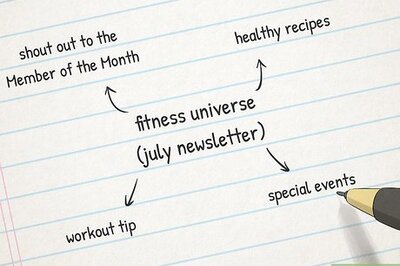 shout out to the
Member of the Month
healthy recipes
fitness universe
(july newsletter)
workout tip
special events